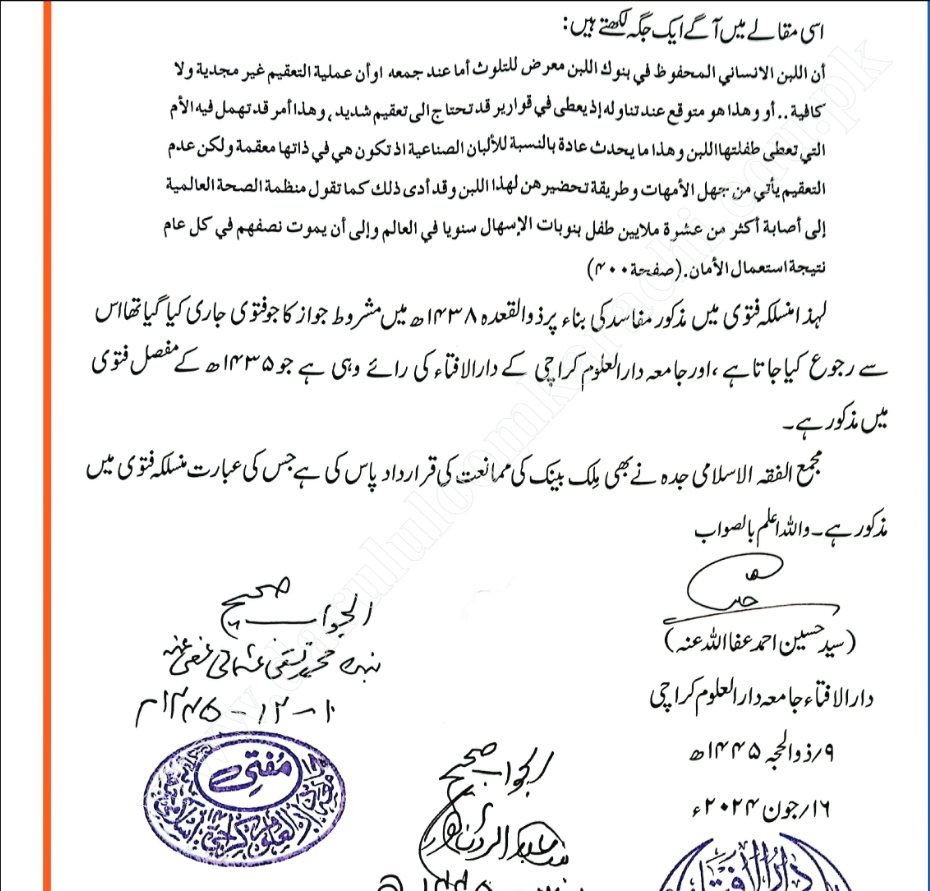 اسی مقالے میں آگے ایک جگہ لکھتے ہیں:
أن اللبن الانساني المحفوظ في بنوك اللبن معرض للتلوث أما عند جمعه اوأن عملية التعقيم غير مجدية ولا
كافية.. أو وهذا هو متوقع عند تناوله إذ يعطى في قوارير قد تحتاج الى تعقيم شديد، وهذا أمر قد تهمل فيه الأم
التي تعطى طفلتها اللبن وهذا ما يحدث عادة بالنسبة للألبان الصناعية اذ تكون هي في ذاتها معقمة ولكن عدم
التعقيم يأتي من جهل الأمهات وطريقة تحضيرهن لهذا اللبن وقد أدى ذلك كما تقول منظمة الصحة العالمية
إلى أصابة أكثر من عشرة ملايين طفل بنوبات الإسهال سنويا في العالم وإلى أن يموت نصفهم في كل عام
نتيجة استعمال الأمان. (صفحة ۴۰۰)
لہذا منسلکہ فتوی میں مذکور مفاسد کی بناء پر ذوالقعدہ ۱۴۳۸ھ میں مشروط جواز کا جو فتوی جاری کیا گیا تھا اس
سے رجوع کیا جاتا ہے، اور جامعہ دارالعلوم کراچی کے دارالافتاء کی رائے وہی ہے جو ۱۴۳۵ھ کے مفصل فتوی
میں مذکور ہے۔
مجمع الفقہ الاسلامی جدہ نے بھی مِلک بینک کی ممانعت کی قرار داد پاس کی ہے جس کی عبارت منسلکہ فتوی میں
مذکور ہے۔ واللہ اعلم بالصواب
(سید حسین احمد عفا اللہ عنہ)
دارالافتاء جامعہ دارالعلوم کراچی
۹/ذوالحجہ ۱۴۴۵ھ
۱۶/جون ۲۰۲۴ء
الجواب صحیح
بندہ محمد تقی عثمانی عفی عنہ
۱۰-۱۲-۱۴۴۵ھ
مفتی
الجواب صحیح
دارالافتاء
www.darululoomkarachi.edu.pk